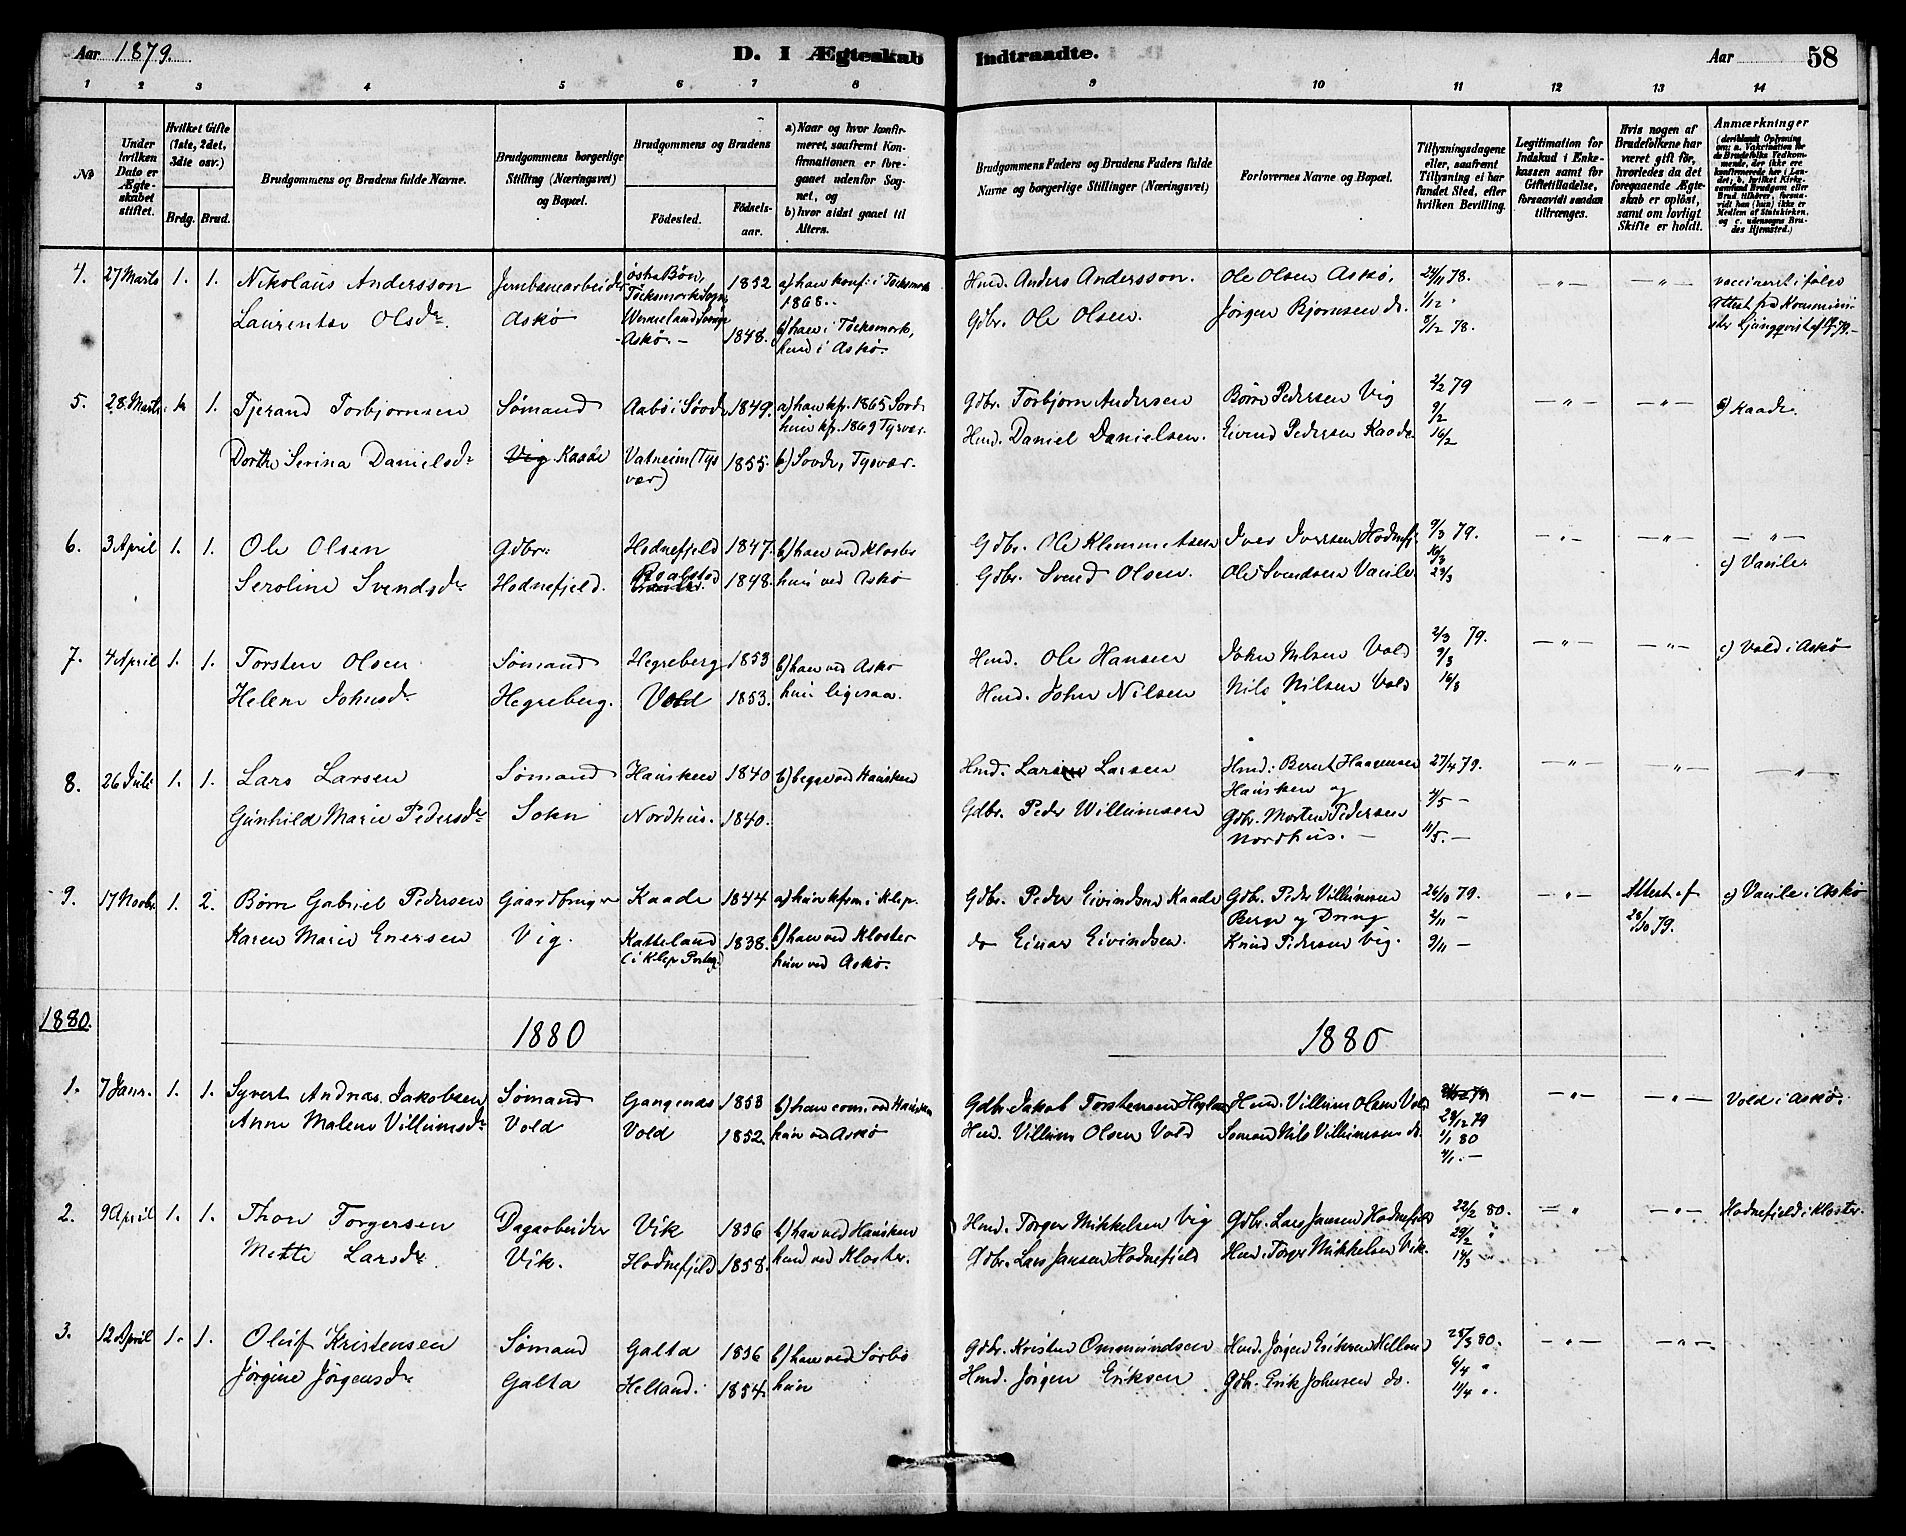 Aar 1879. D. I Ægteskab Indtraadte. Aar 58
1 2 3 4 5 6 7 8 9 10 11 12 13 14
No
Under hvilken Dato er Ægteskabet stiftet.
Hvilket Gifte (1ste, 2det, 3die osv.)
Brdg. Brud.
Brudgommens og Brudens fulde Navne.
Brudgommens borgerlige Stilling (Næringsvei) og Bopæl.
Brudgommens og Brudens
Fødested. Fødselsaar.
a) Naar og hvor konfirmeret, saafremt Konfirmationen er foregaaet udenfor Sognet, og
b) hvor sidst gaaet til Alters.
Brudgommens Faders og Brudens Faders fulde Navne og borgerlige Stillinger (Næringsvei)
Forlovernes Navne og Bopæl.
Tillysningsdagene eller, saafremt Tillysning ei har fundet Sted, efter hvilken Bevilling.
Legitimation for Indskud i Enkekassen samt for Giftetilladelse, forsaavidt saadan tiltrænges.
Hvis nogen af Brudefolkene har været gift før, hvorledes da det foregaaende Ægteskab er opløst, samt om lovligt Skifte er holdt.
Anmærkninger
4. 27 Marts 1. 1. Nikolaus Andersson Jernbanearbeider 1852 a) han konf. i Töcksmork 1868. Hmd. Anders Andersson. Ole Olsen Askø, 24/11 78. — " — — " —
Laurentse Olsdr. Askø Askø. — 1848. b) han i Töcksmork, hun i Askø. Gdbr. Ole Olsen. Jörgen Bjornsen do. 1/12 " 8/12 78.
5. 28. Marts 1. Tjerand Torbjornsen Sømand 1849. a) han kf. 1865 hun kf. 1869 Tysvær. Gdbr. Torbjorn Andersen Børre Pedersen Vig 2/2 79 9/2 — " — — " — Kaade.
Dorthe Serina Danielsdr Vig Kaade Vatneim (Tysvær) 1855. b) Tysvær. Hmd. Daniel Danielsen. Eivind Pedersen Kaade 16/2
6. 3 April 1. 1. Ole Olsen Gdbr. Hodnefjeld 1847. b) han ved Kloster Gdbr. Ole Klemmetsen Iver Iversen Hodnefj. 9/3 79. 16/3 — " — — " — — " —
Seroline Svendsdr Hodnefjeld. 1848. hun ved Askø Gdbr. Svend Olsen. Ole Svendsen Vaule 23/3 c) Vaule
7. 4 April 1. 1. Torsten Olsen Sømand Hegreberg 1853 b) han ved Askø Hmd. Ole Hansen John Nilsen Vold 2/3 79. 9/3 — " — — " — c) Vold i Askø
Helene Johnsdr Hegreberg. Vold 1853. hun ligesaa. Hmd. John Nilsen Nils Nilsen Vold 16/3
8. 26 Juli 1. 1. Lars Larsen Sømand Hausken 1840 b) begge ved Hausken Hmd. Lars Larsen Hmd. Bernt Haagensen Hausken og 27/4 79. — " — — " — "
Gunhild Marie Pedersdr Sokn Nordhus. 1840. Gdbr. Peder Willumsen Gdbr. Morten Pedersen Nordhus. — 4/5 — 11/5. —
9. 17 Novbr. 1. 2. Børre Gabriel Pedersen Gaardbruger Kaade 1844 a) hun kfrm i Klep. Gdbr. Peder Eivindsen Kaade Gdbr. Peder Villumsen Berge og Dreng 26/10 79. 2/11 — — " — Attest af 28/10 79. c) Vaule i Askø
Karen Marie Enersen Vig. Katteland 1838. b) han ved Kloster hun ved Askø. do Einar Eivindsen. Knud Pedersen Vig. 9/11 —
1880. 1880 1880
1. 7 Janr. 1. 1. Syvert Andreas Jakobsen Sømand Gangenæs 1853 b) han com. ved Hausken Gdbr. Jakob Torstensen Hmd. Villum Olsen Vold 29/12 79 — " — — " — Vold i Askø.
Anne Malene Villumsdr Vold Vold 1852. hun ved Askø Hmd. Villum Olsen Vold Sømand Nils Villumsen do. 1/1 80 4/1. —
2. 9 April 1. 1. Thore Torgersen Dagarbeider Vik 1856 b) han ved Hausken Hmd. Torger Mikkelsen Vig Gdbr. Lars Jansen Hodnefjeld 22/2 80. 29/2 " — " — — " — Hodnefjeld i Kloster.
Mette Larsdr. Vik. Hodnefjeld 1858. hun ved Kloster. Gdbr. Lars Jansen Hodnefjeld Hmd. Torger Mikkelsen Vik. 14/3 "
3. 12 April 1. 1. Oluf Kristensen Sømand Galta 1856 b) han ved Sørbø Gdbr. Kristen Ommundsen Hmd. Jörgen Eriksen Helland 28/3 80. — " — — " —
Jörgine Jörgensdr Galta Helland. 1854. hun Hmd. Jörgen Eriksen Gdbr. Erik Johnsen do. 6/4 " 11/4 ".